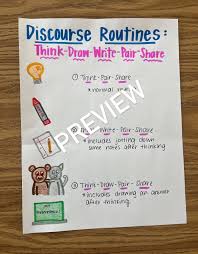 Discourse Routines:
Think-Draw-Write-Pair-Share
① Think-Pair-Share
*normal
PREVIEW
② Write-Pair-Share
*includes jotting down
some notes after thinking
③ Think-Draw-Pair-Share
*includes drawing an answer
after thinking.